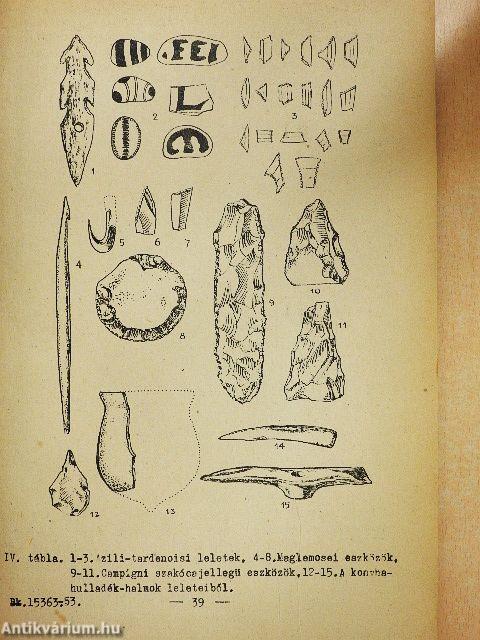 FEI
1
2
3
4
5
6
7
8
9
10
11
12
13
14
15
IV. tábla. 1-3.'zili-tardenoisi leletek, 4-8.Maglemosei eszközök,
9-11.Campigni szakócajellegü eszközök,12-15.A konyha-
hulladék-halmok leleteiből.
Bk.15363-53. — 39 —
Antikvárium.hu